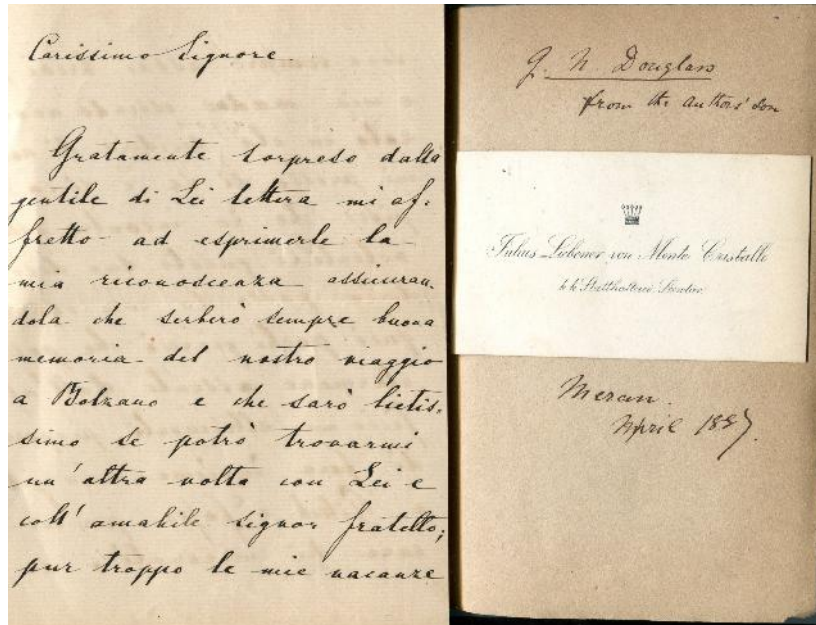 Carissimo Signore
Gratamente sorpreso dalla
gentile di Lei lettera mi af:
fretto ad esprimerle la
mia riconoscenza assicuran
dola che serberò sempre buona
memoria del nostro viaggio
a Bolzano e che sarò lietis,
simo se potrò trovarmi
un'altra volta con Lei e
coll'amabile signor fratello;
pur troppo le mie vacanze
G. N. Douglass
from the authors' son
Julius Liebener von Monte Cristallo
k. k. Statthalterei
Meran.
April 1887.